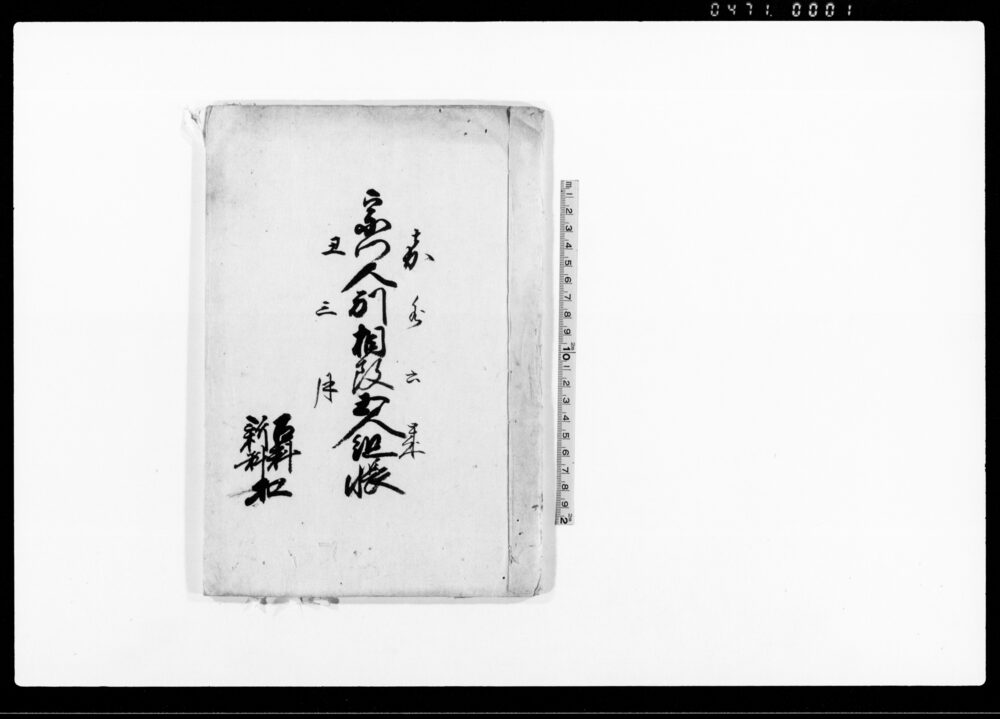 0471. 0001
嘉永六歳
宗門人別相改五人組帳
丑三月
古料
新料
m 1 2 3 4 5 6 7 8 9 10 1 2 3 4 5 6 7 8 9 2